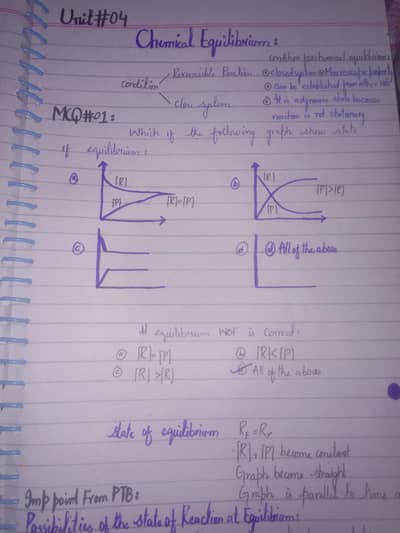 Unit#04
Chemical Equilibrium:
condition for chemical equilibrium:
Reversible Reaction
closed system Macroscopic property
condition
can be established from either side
Close system
It is a dynamic state because
reaction is not stationary
MCQ#01:
Which of the following graph show state
of equilibrium:
a [R] [P] [R]=[P]
b [R] [P] [P]>[R]
c
d All of the above
At equilibrium is correct:
a [R]=[P] b [R]<[P]
c [R]>[R] d All of the above
state of equilibrium Rf = Rr
[R], [P] become constant
Graph become straight
Graph is parallel to time
Imp point From PTB:
Possibilities of the state of Reaction at Equilibrium: